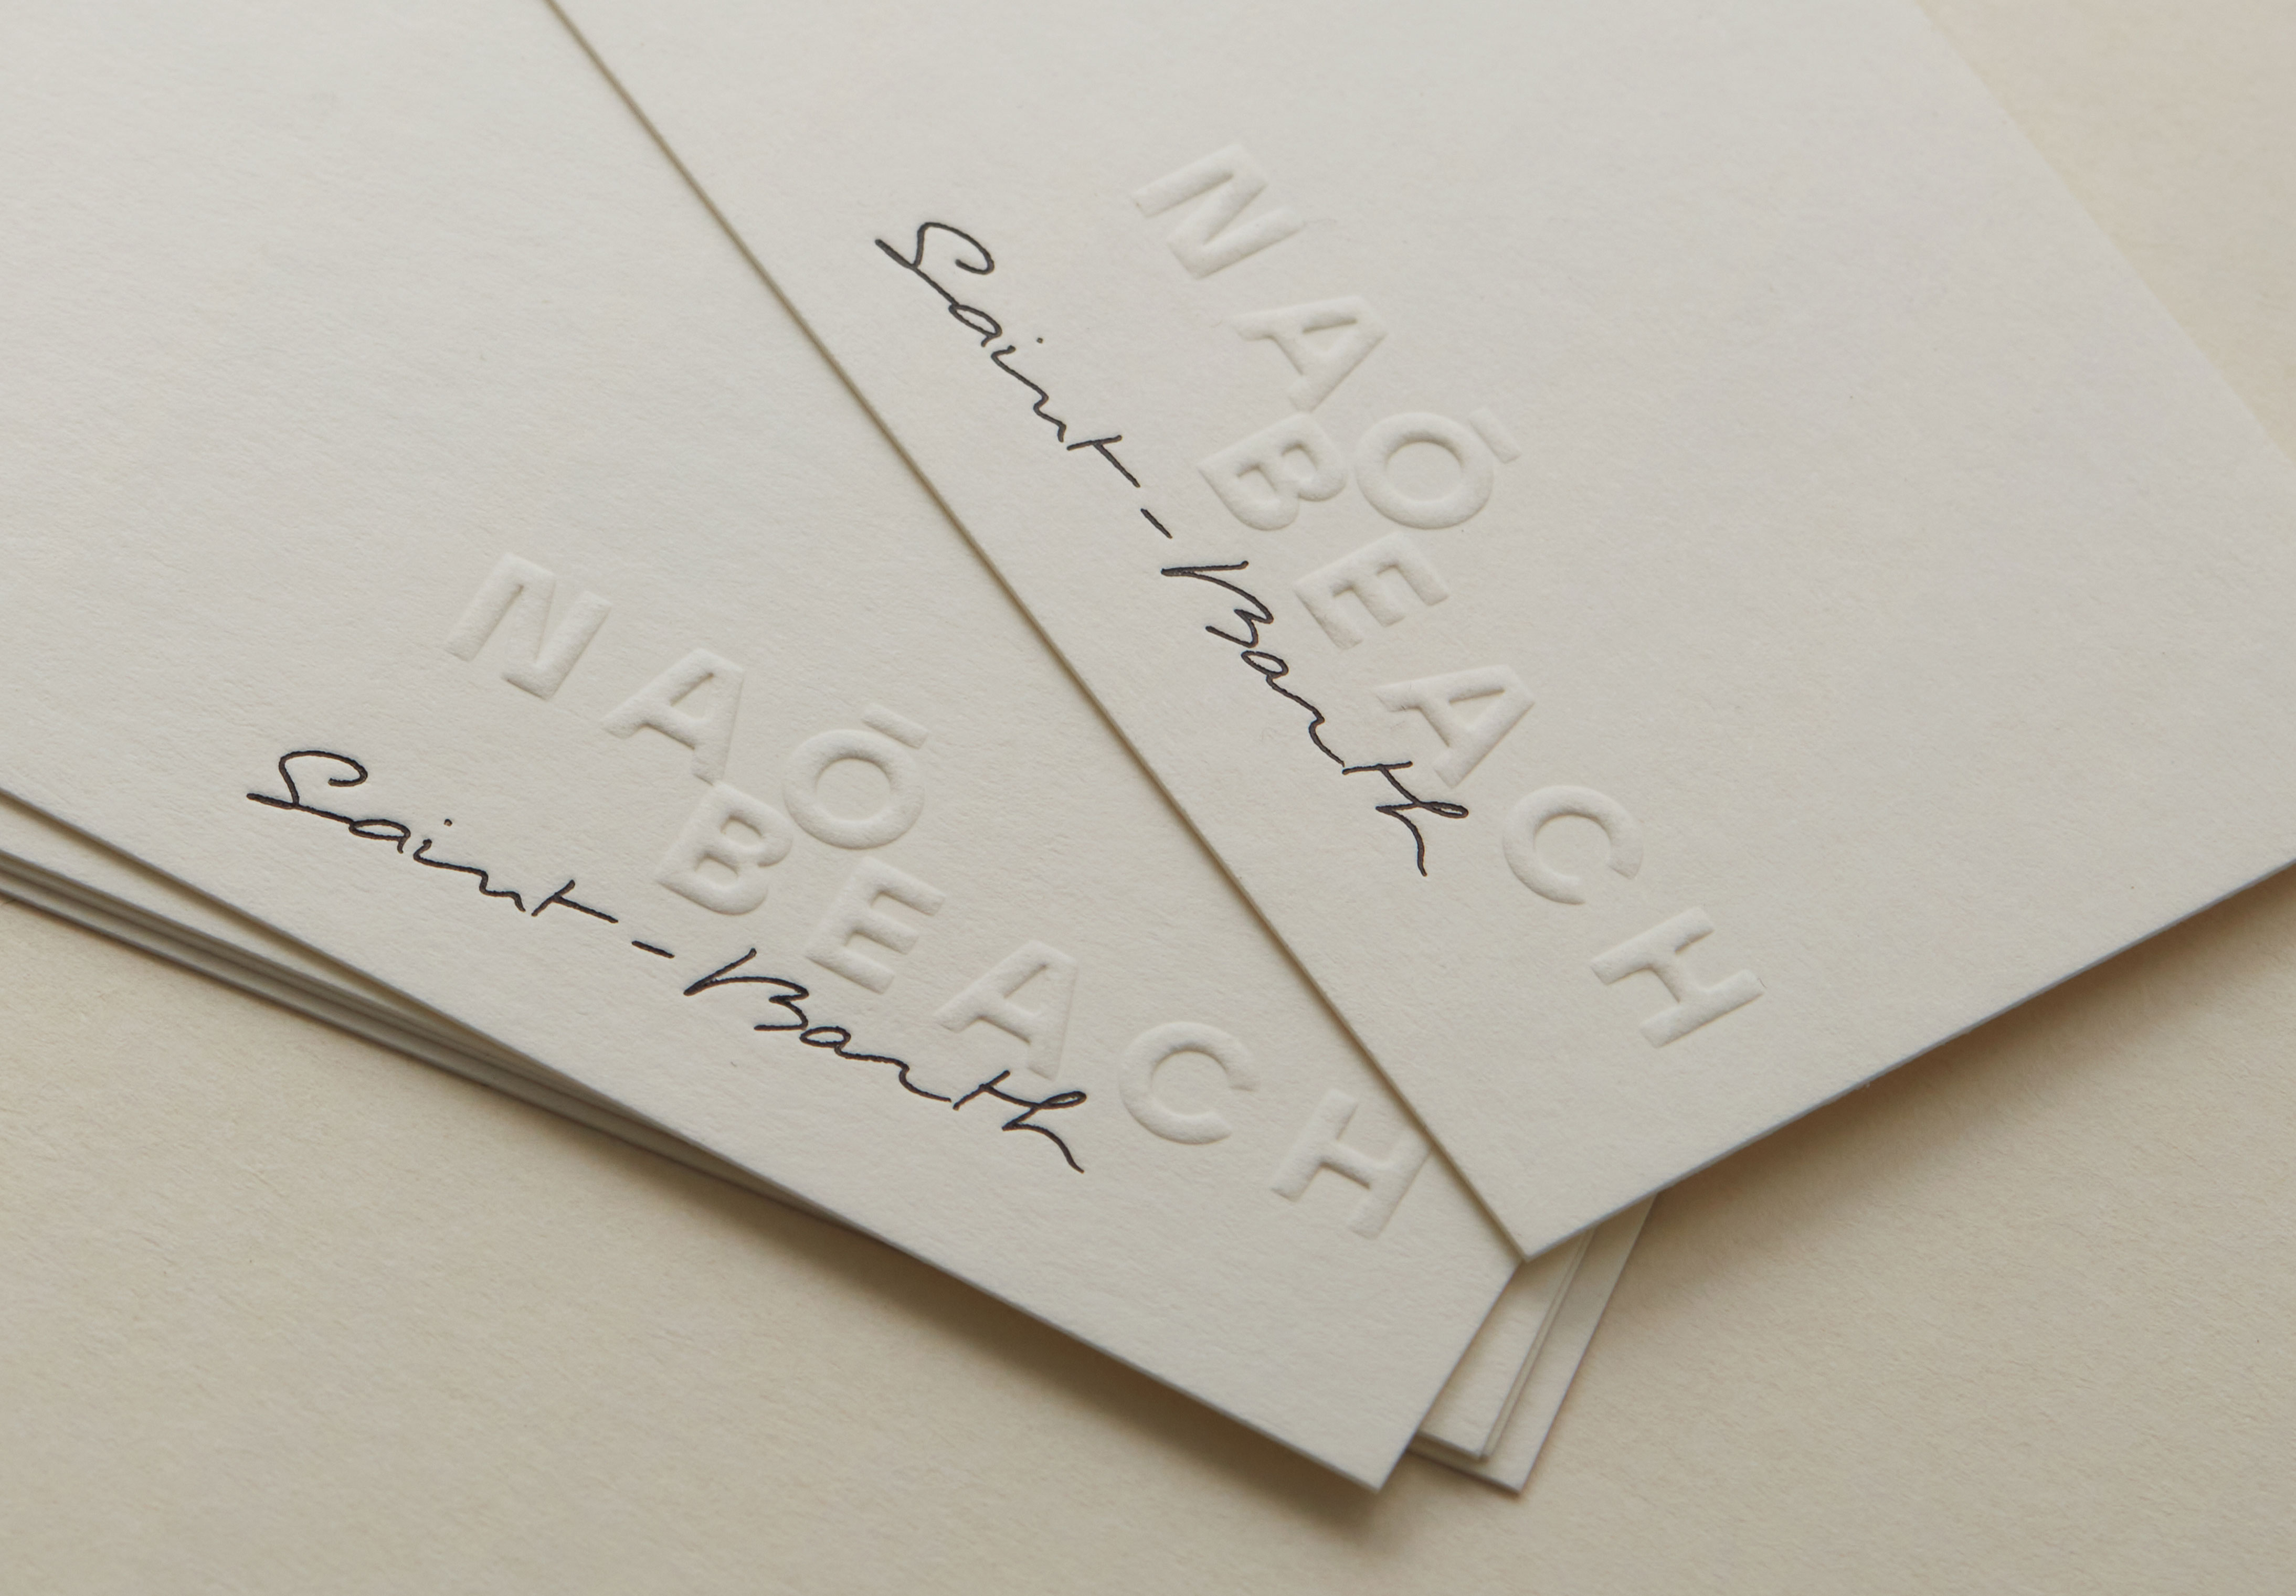 NAŌ
BEACH
Saint-Barth
NAŌ
BEACH
Saint-Barth